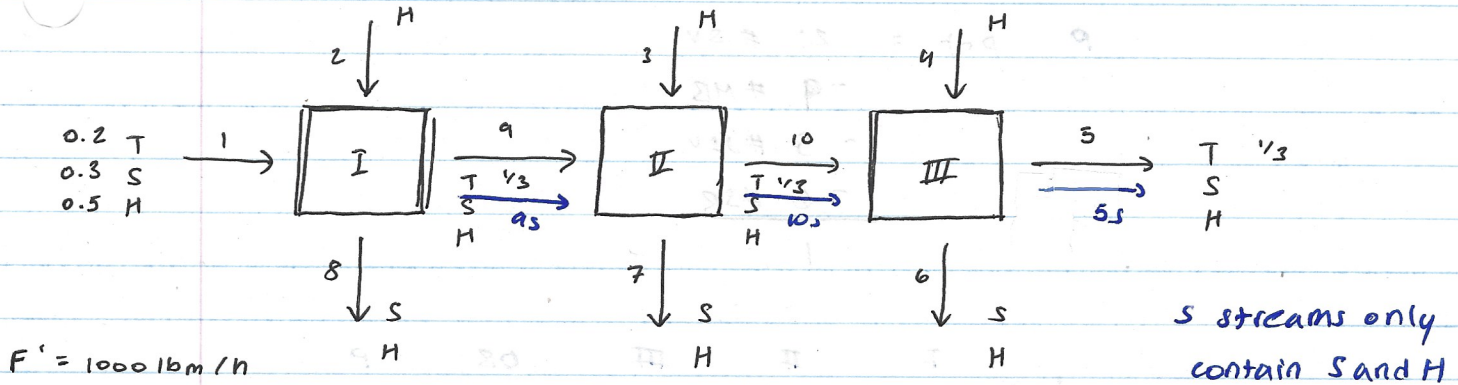 H H H
2 3 4
0.2 T
0.3 S
0.5 H
1
I
9
T 1/3
S
H
9s
II
10
T 1/3
S
H
10s
III
5
5s
T 1/3
S
H
8 7 6
S S S
H H H
F' = 1000 lbm/h
s streams only
contain S and H